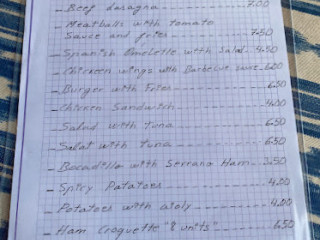 - Beef dasagna - - - - - 7.00
- Meatballs with tomato
Sauce and fries - - - - - 7.50
- Spanish Omelette with Salad. 4.50
- Chicken wings with Barbecue sauce. 5.00
- Burger with Fries - - - - - 6.50
- Chicken Sandwich - - - - - 4.00
- Salad with tuna - - - - - 6.50
- Salat with Tuna - - - - - 6.50
- Bocadillo with Serrano Ham. - 3.50
- Spicy Potatoes - - - - - 4.00
- Potatoes with aioly - - - - 4.00
- Ham Croquette "8 units" - - - 6.50